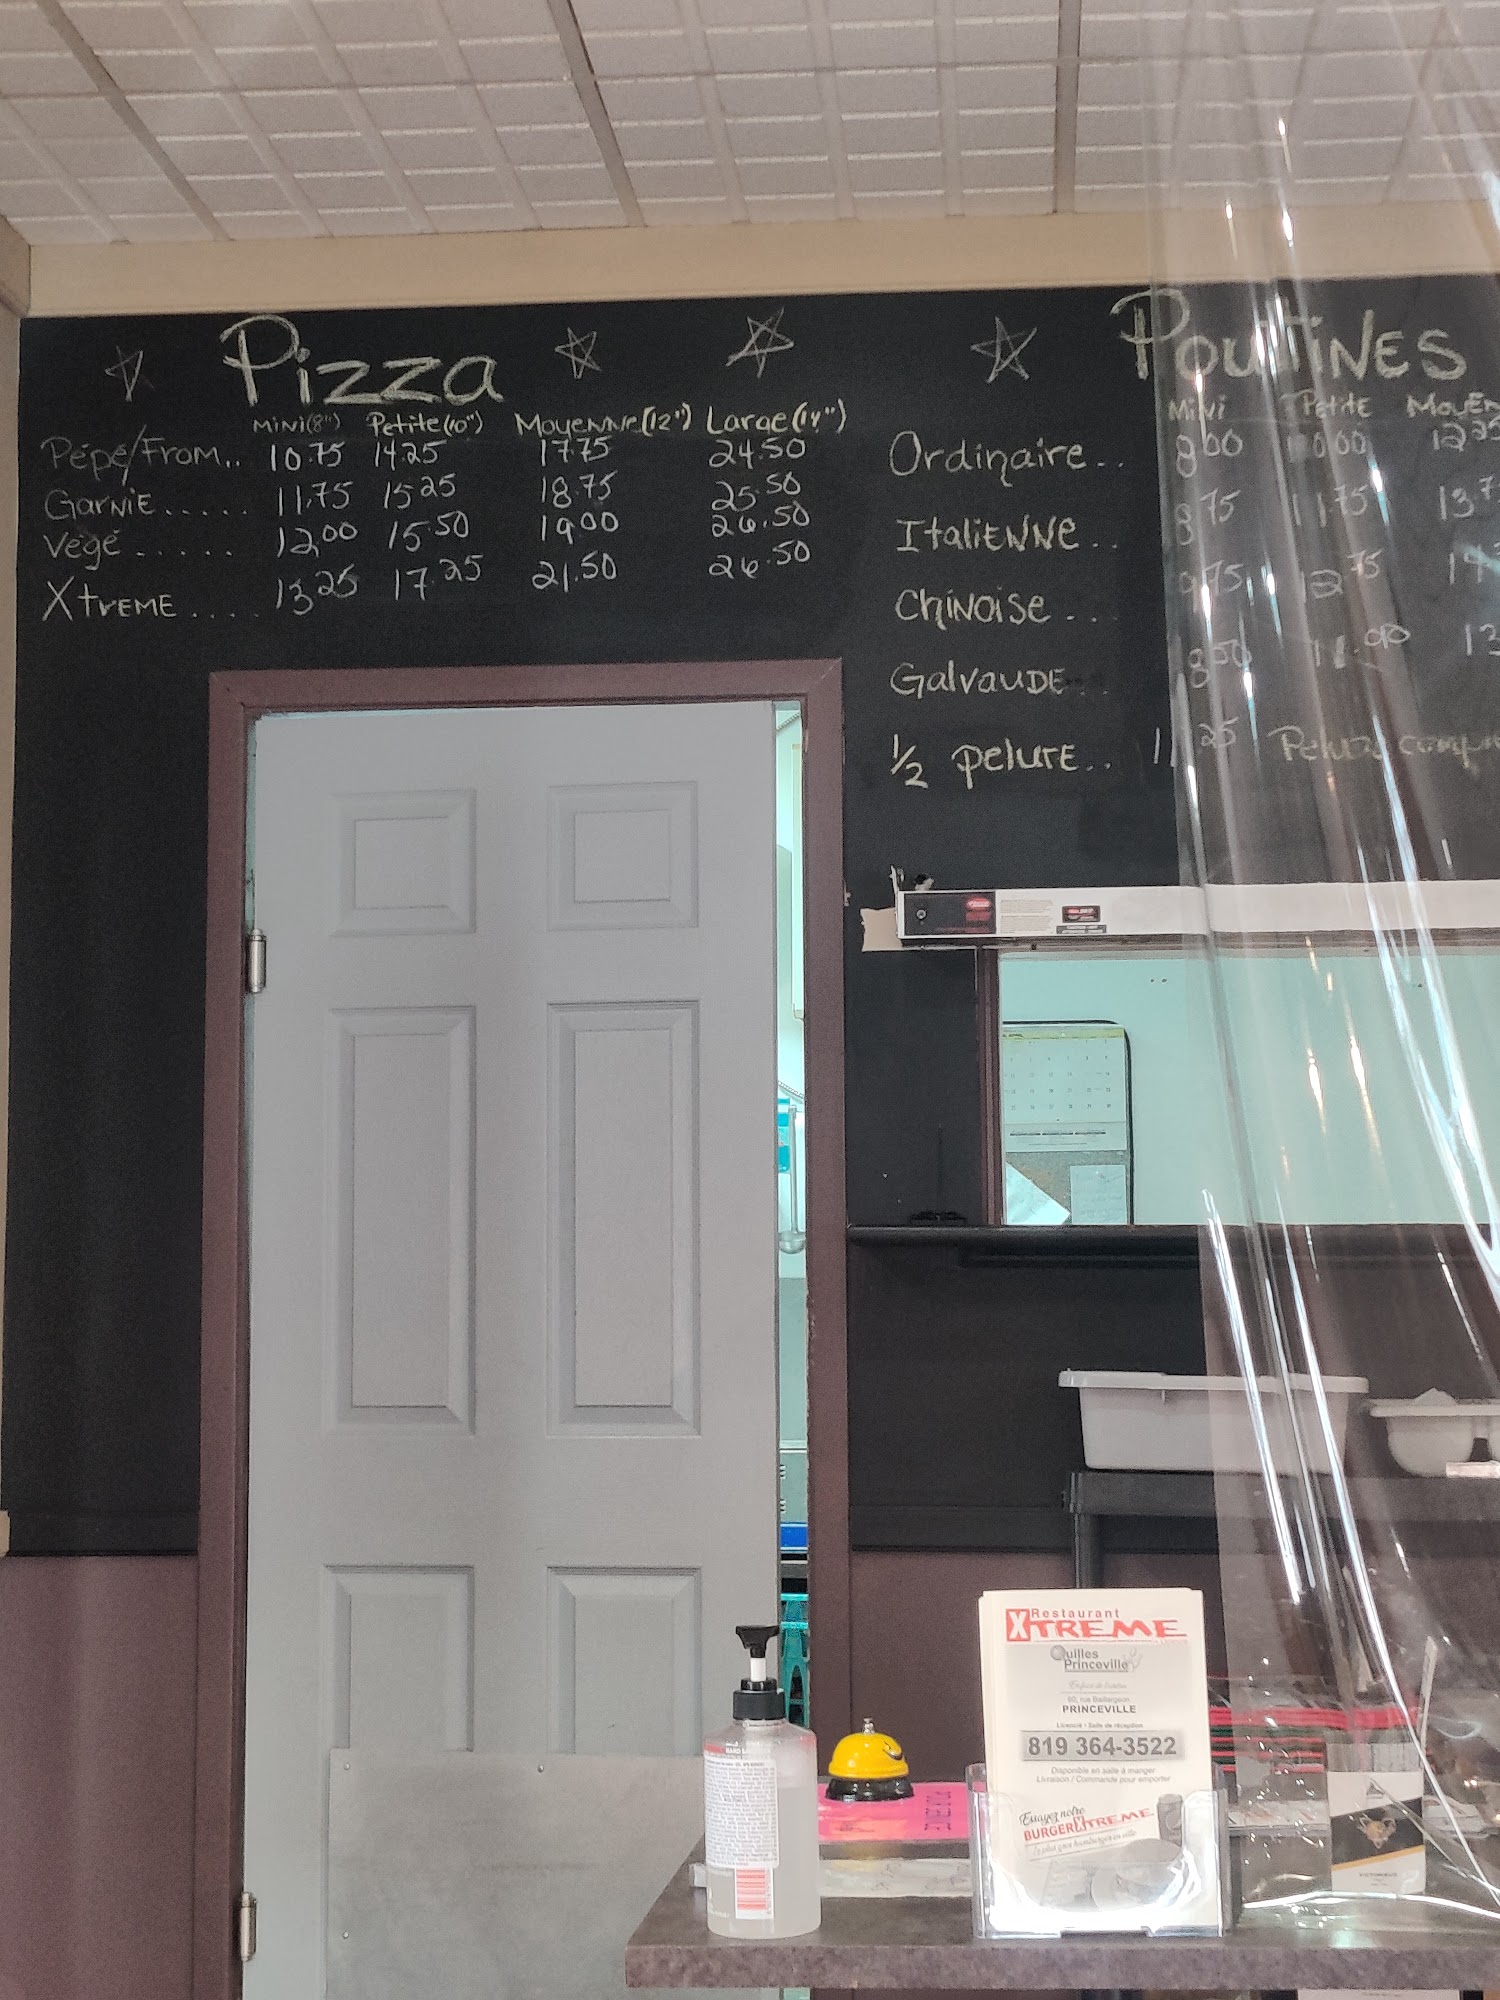 Pizza
Mini(8") Petite(10") Moyenne(12") Large(14")
Pépé/From.. 10.75 14.25 17.75 24.50
Garnie..... 11.75 15.25 18.75 25.50
Végé..... 12.00 15.50 19.00 26.50
Xtreme.... 13.25 17.25 21.50 26.50
Poutines
Mini Petite Moyen
Ordinaire.. 8.00 10.00 12.25
Italienne.. 8.75 11.75 13.7
Chinoise... 9.75 12.75 14
Galvaude.. 8.50 11.00 13
1/2 pelure.. 11.25 Pelure comp
Restaurant
XTREME
Quilles
Princeville
60, rue Baillargeon
PRINCEVILLE
Licencié • Salle de réception
819 364-3522
Disponible en salle à manger
Livraison / Commande pour emporter
Essayez notre
BURGER XTREME
Le plus gros hamburger en ville
VICTORIEUX